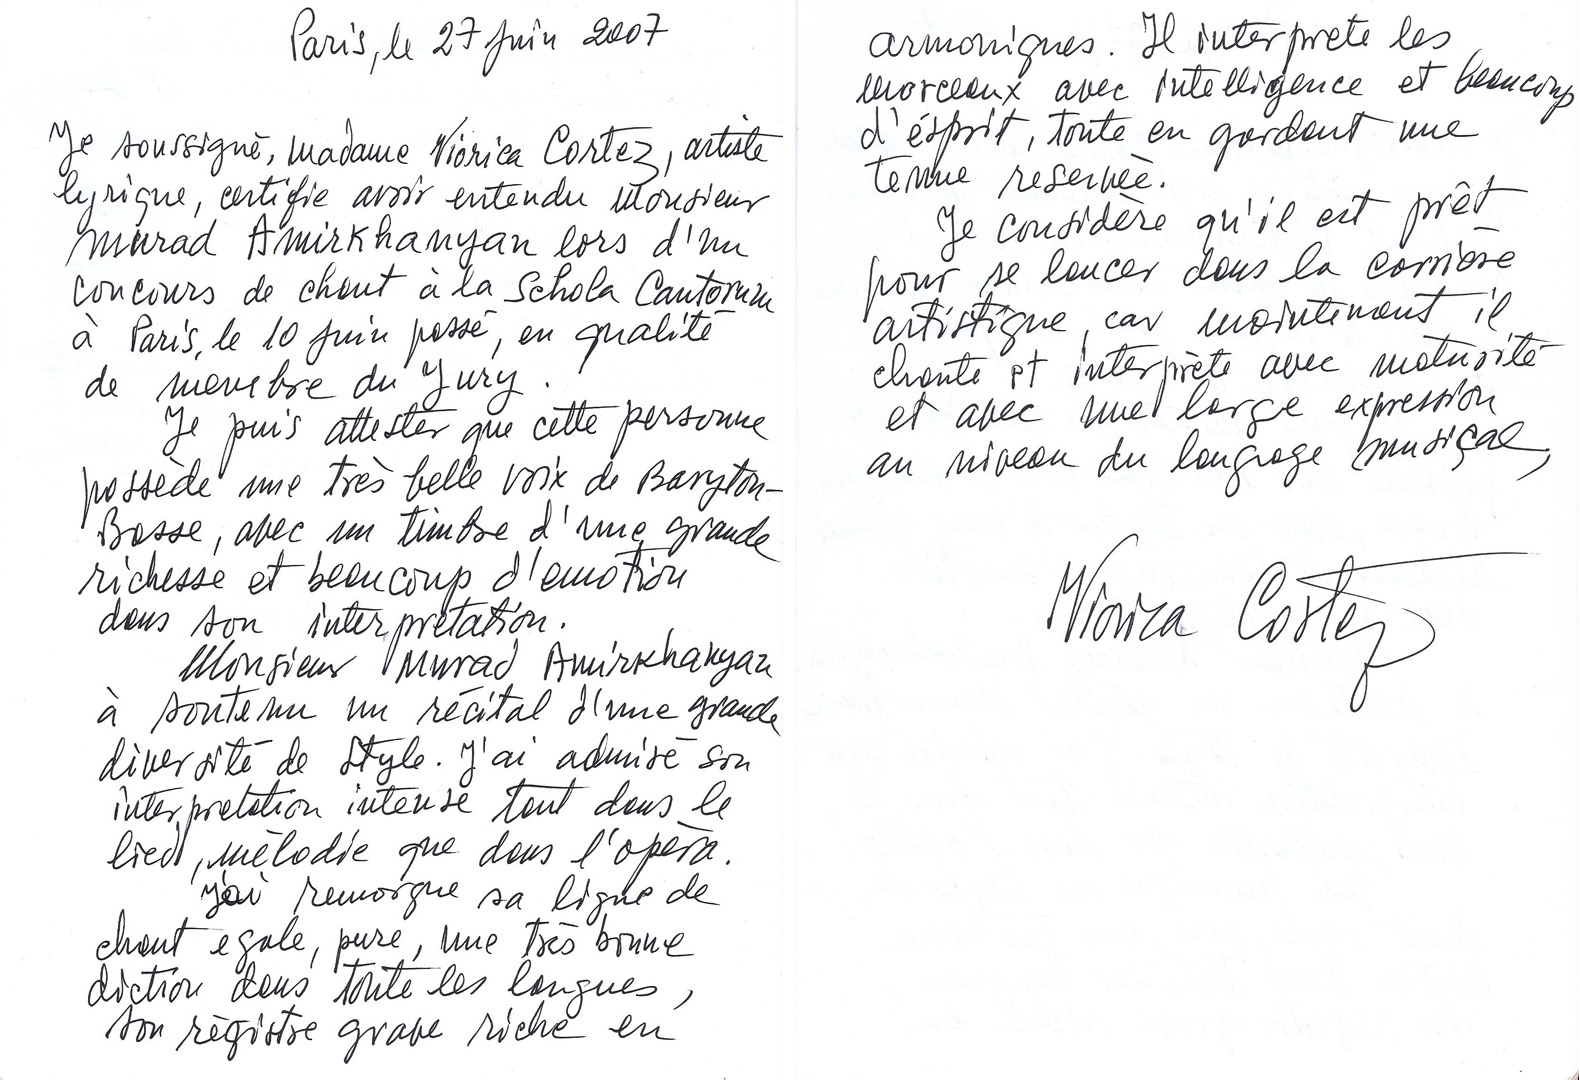 Paris, le 27 Juin 2007
Je soussigné, madame Viorica Cortez, artiste
lyrique, certifie avoir entendu Monsieur
Murad Amirkhanyan lors d'un
concours de chant à la Schola Cantorum
à Paris, le 10 Juin passé, en qualité
de membre du Jury.
Je puis attester que cette personne
possède une très belle voix de Baryton-
Basse, avec un timbre d'une grande
richesse et beaucoup d'emotion
dans son interpretation.
Monsieur Murad Amirkhanyan
à soutenu un récital d'une grande
diversité de Style. J'ai admiré son
interpretation intense tant dans le
lied, mélodie que dans l'opèra.
J'ai remarque sa ligne de
chant egale, pure, une très bonne
diction dans toute les langues,
son règistre grave riche en
armoniques. Il interprete les
morceaux avec intelligence et beaucoup
d'ésprit, toute en gardant une
tenue reservèe.
Je considère qu'il est prêt
pour se lancer dans la carrière
artistique, car maintenant il
chante et interprète avec maturité
et avec une large expression
au niveau du langage musiçal,
Viorica Cortez